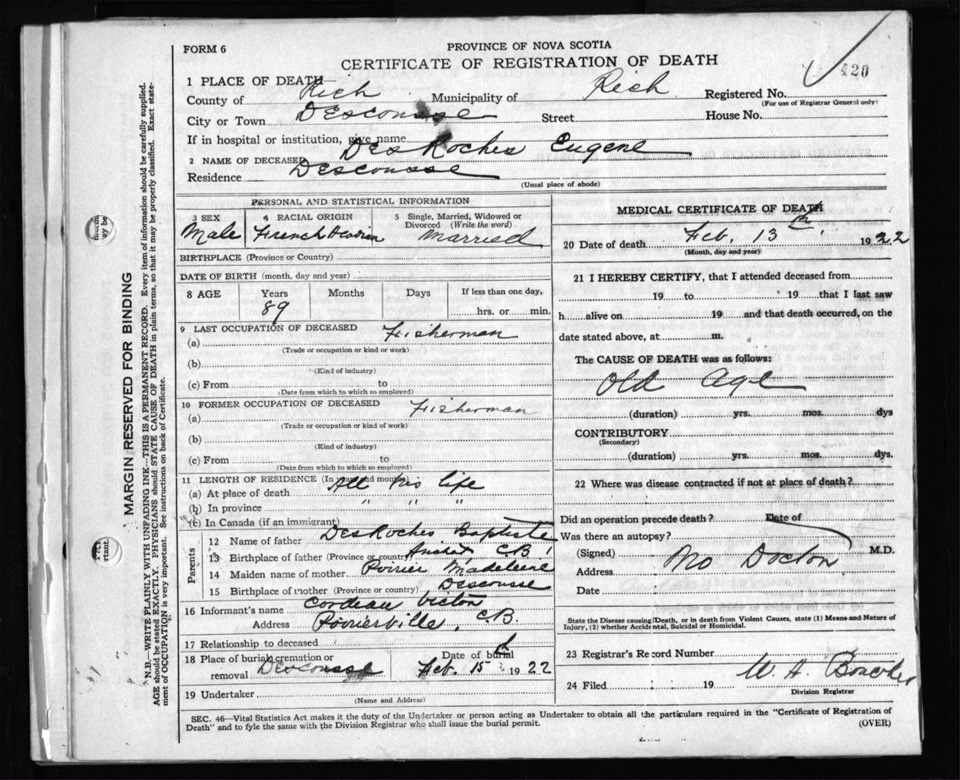 FORM 6
PROVINCE OF NOVA SCOTIA
CERTIFICATE OF REGISTRATION OF DEATH
420
1 PLACE OF DEATH
County of Rich Municipality of Rich Registered No.
(For use of Registrar General only)
City or Town Descousse Street House No.
If in hospital or institution, give name
2 NAME OF DECEASED DesRoches Eugene
Residence Descousse
(Usual place of abode)
PERSONAL AND STATISTICAL INFORMATION
3 SEX 4 RACIAL ORIGIN 5 Single, Married, Widowed or Divorced (Write the word)
Male French Acadian Married
BIRTHPLACE (Province or Country)
DATE OF BIRTH (month, day and year)
8 AGE Years Months Days If less than one day,
89 hrs. or min.
9 LAST OCCUPATION OF DECEASED
(a) Fisherman
(Trade or occupation or kind or work)
(b)
(Kind of industry)
(c) From to
(Date from which to which so employed)
10 FORMER OCCUPATION OF DECEASED
(a) Fisherman
(Trade or occupation or kind of work)
(b)
(Kind of industry)
(c) From to
(Date from which to which so employed)
11 LENGTH OF RESIDENCE (In years and months)
(a) At place of death All his life
(b) In province " " "
(c) In Canada (if an immigrant)
Parents
12 Name of father DesRoches Baptiste
13 Birthplace of father (Province or country) C.B.
14 Maiden name of mother Poirier Madeleine
15 Birthplace of mother (Province or country) Descousse
16 Informant's name Cordeau Victor
Address Poirierville, C.B.
17 Relationship to deceased
18 Place of burial, cremation or removal Descousse Date of burial Feb. 15 1922
19 Undertaker
(Name and Address)
MEDICAL CERTIFICATE OF DEATH
20 Date of death Feb. 13th, 1922
(Month, day and year)
21 I HEREBY CERTIFY, that I attended deceased from
19 to 19 that I last saw
h alive on 19 and that death occurred, on the
date stated above, at m.
The CAUSE OF DEATH was as follows:
Old Age
(duration) yrs. mos. dys
CONTRIBUTORY
(Secondary)
(duration) yrs. mos. dys.
22 Where was disease contracted if not at place of death?
Did an operation precede death? Date of
Was there an autopsy?
(Signed) No Doctor M.D.
Address
Date
State the Disease causing Death, or in death from Violent Causes, state (1) Means and Nature of
Injury, (2) whether Accidental, Suicidal or Homicidal.
23 Registrar's Record Number
24 Filed 19 W. H.
Division Registrar
SEC. 46—Vital Statistics Act makes it the duty of the Undertaker or person acting as Undertaker to obtain all the particulars required in the "Certificate of Registration of
Death" and to fyle the same with the Division Registrar who shall issue the burial permit. (OVER)
MARGIN RESERVED FOR BINDING
N.B.—WRITE PLAINLY WITH UNFADING INK—THIS IS A PERMANENT RECORD. Every item of information should be carefully supplied.
AGE should be stated EXACTLY. PHYSICIANS should STATE CAUSE OF DEATH in plain terms, so that it may be properly classified. Exact state-
ment of OCCUPATION is very important. See instructions on back of Certificate.